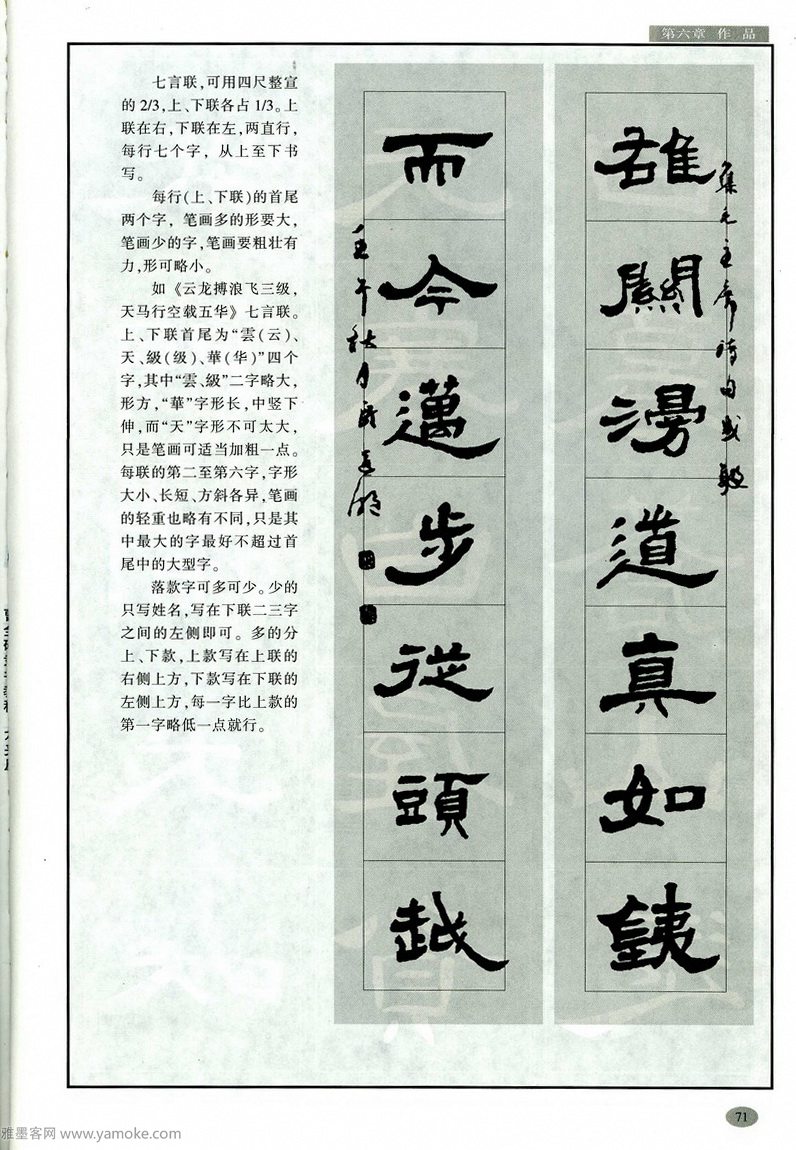 第六章 作品
七言联,可用四尺整宣
的 2/3,上、下联各占 1/3。上
联在右,下联在左,两直行,
每行七个字，从上至下书
写。
每行(上、下联)的首尾
两个字，笔画多的形要大,
笔画少的字,笔画要粗壮有
力,形可略小。
如《云龙搏浪飞三级,
天马行空载五华》七言联。
上、下联首尾为“雲(云)、
天、級(级)、華(华)”四个
字,其中“雲、級”二字略大,
形方,“華”字形长,中竖下
伸,而“天”字形不可太大,
只是笔画可适当加粗一点。
每联的第二至第六字,字形
大小、长短、方斜各异,笔画
的轻重也略有不同,只是其
中最大的字最好不超过首
尾中的大型字。
落款字可多可少。少的
只写姓名,写在下联二三字
之间的左侧即可。多的分
上、下款,上款写在上联的
右侧上方,下款写在下联的
左侧上方,每一字比上款的
第一字略低一点就行。
集毛主席诗句
雄關漫道真如銕
而今邁步從頭越
壬午秋月
71
雅墨客网 www.yamoke.com